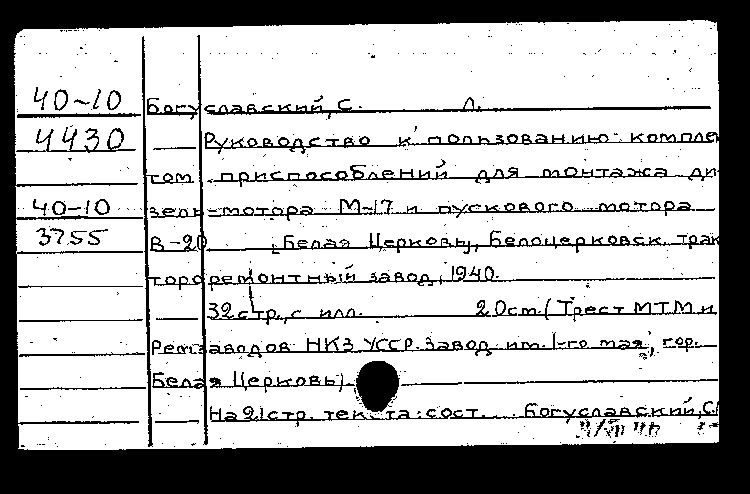 40-10 Богуславский, С. Л.
4430 Руководство к пользованию комплек
том приспособлений для монтажа ди-
40-10 зель-мотора М-17 и пускового мотора
3755 В-20 Белая Церковь, Белоцерковск. трак
тороремонтный завод, 1940.
32 стр., с илл. 20 см. (Трест МТМ и
Ремзаводов НКЗ УССР. Завод им. 1-го мая, гор.
Белая Церковь).
На 2/стр. текста: сост. Богуславский, С